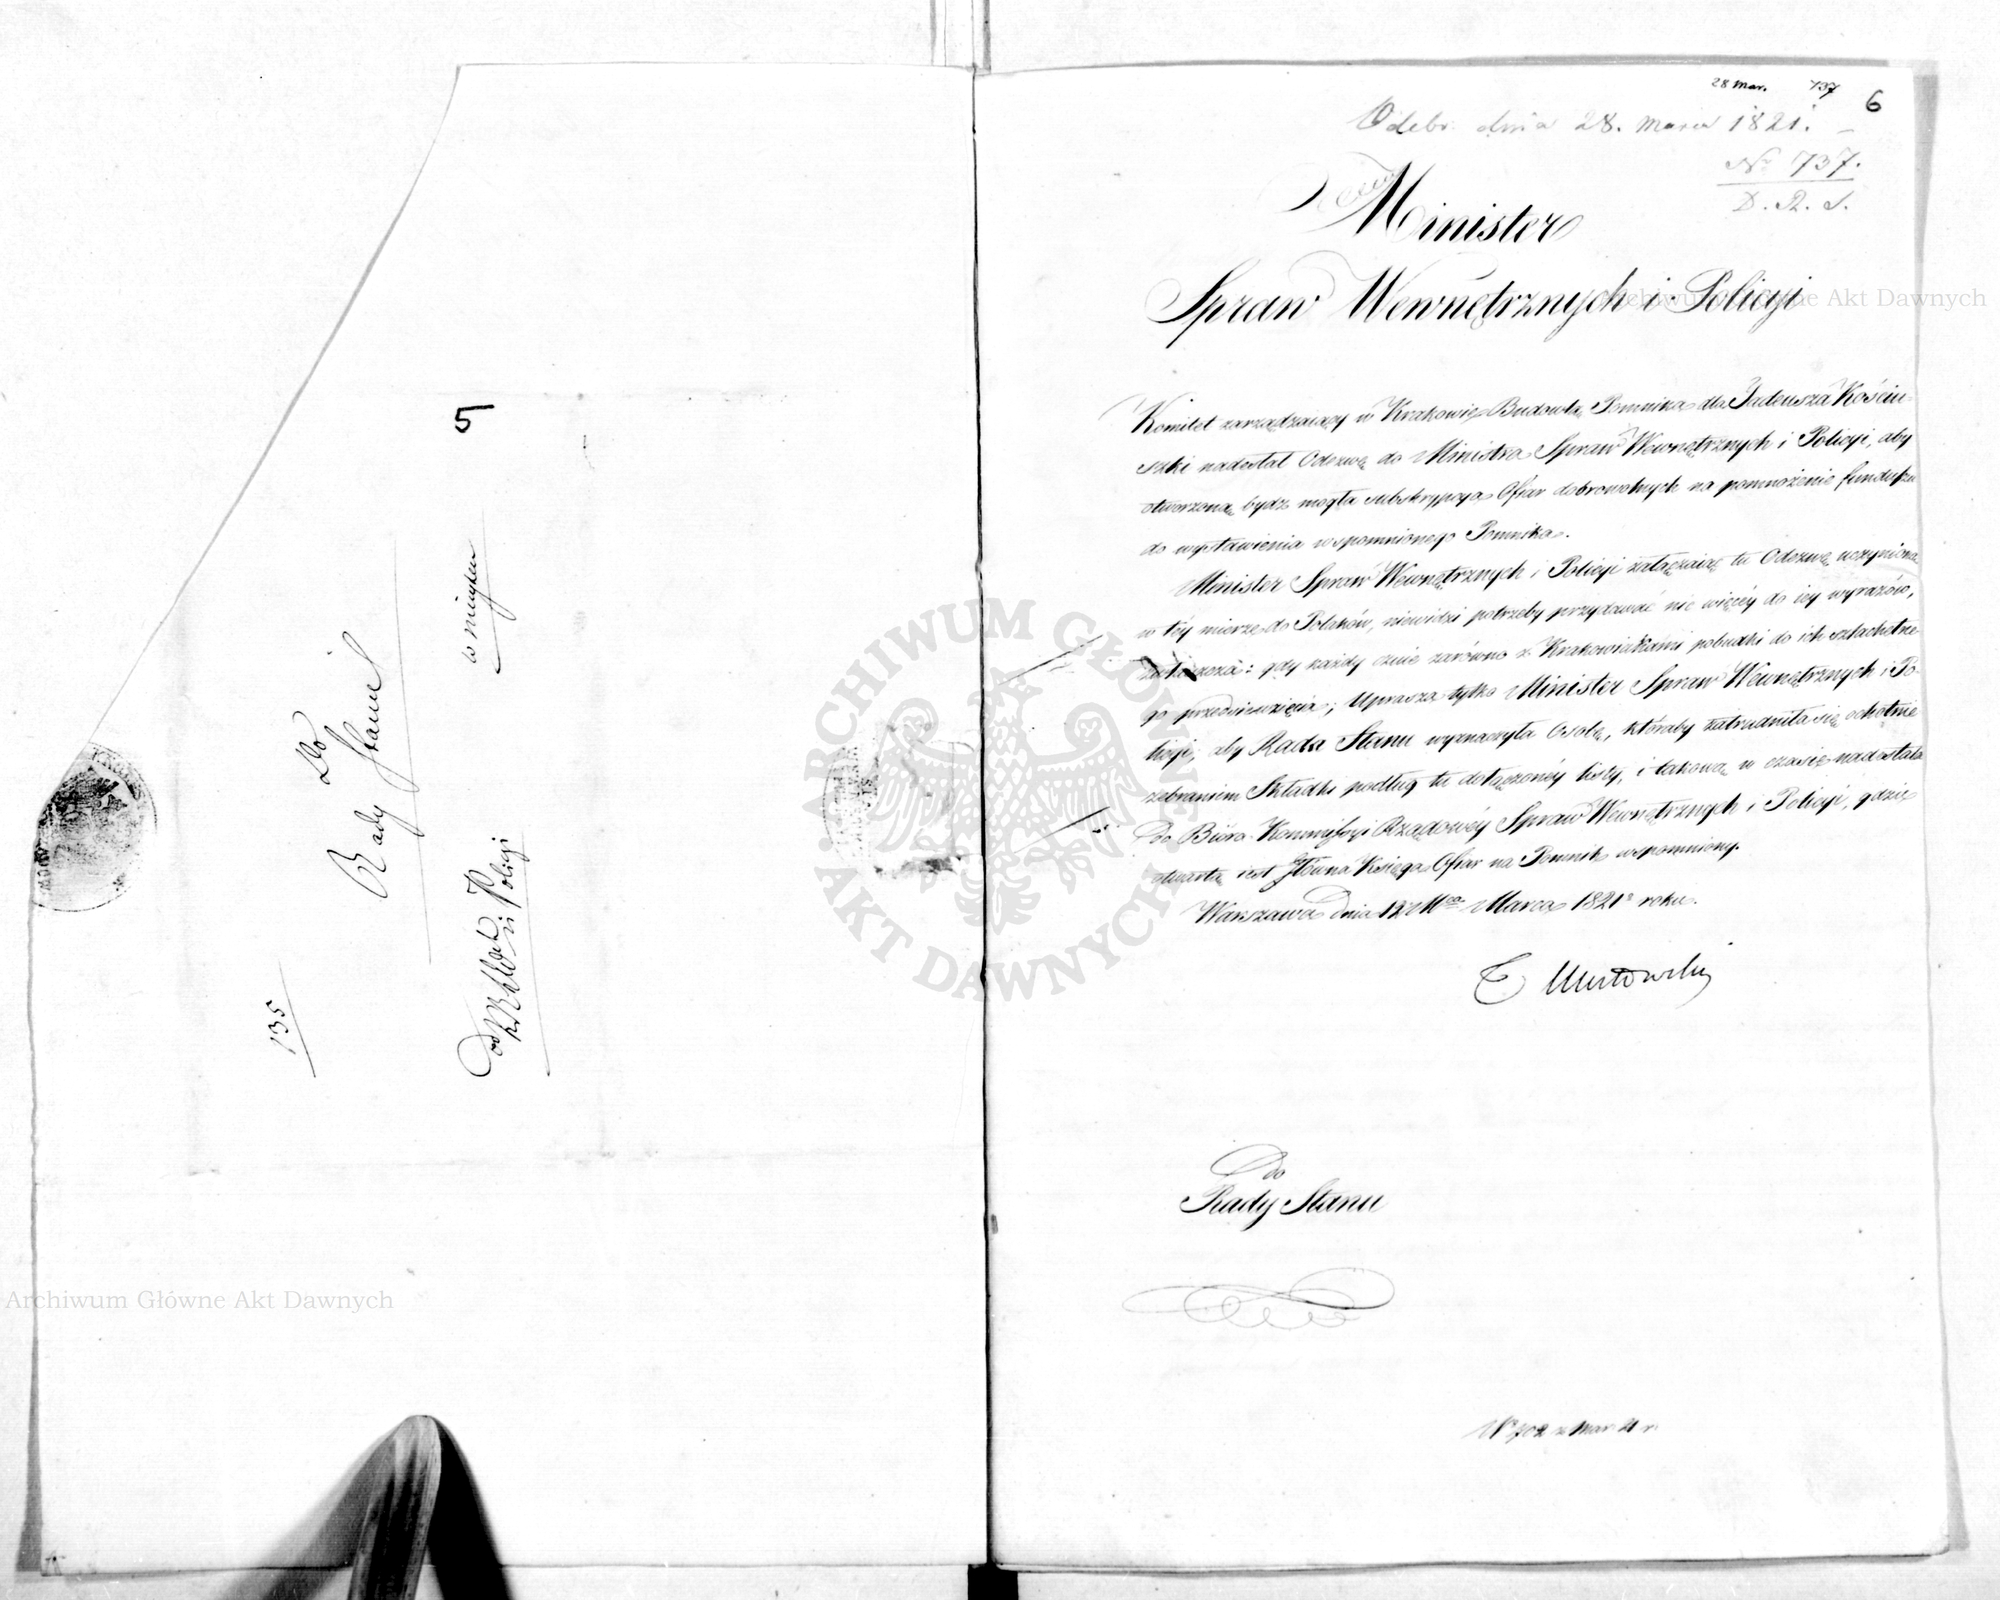 5
135
Do
Rady Stanu
w mieyscu
Policyi
28 Mar. 737
6
Odebr. dnia 28. Marca 1821.
No 737.
D. R. S.
Minister
Spraw Wewnętrznych i Policyi
Komitet zarządzaiący w Krakowie Budowlą Pomnika dla Tadeusza Kościu-
szki nadesłał Odezwę do Ministra Spraw Wewnętrznych i Policyi, aby
otworzoną bydź mogła subskrypcya Ofiar dobrowolnych na pomnożenie funduszu
do wystawienia wspomnionego Pomnika.
Minister Spraw Wewnętrznych i Policyi załączaiąc tu Odezwę uczynioną
w téy mierze do Polaków, niewidzi potrzeby przydawać nic więcéy do iey wyrazów,
gdy każdy czuie zarówno z Krakowiakami pobudki do ich szlachetne-
go przedsiewzięcia; Uprasza tylko Minister Spraw Wewnętrznych i Po-
licyi, aby Rada Stanu wyznaczyła Osobę, któraby zatrudniła się ochotnie
zebraniem Składki podług tu dołączonéy listy, i takową w czasie nadesłała
do Biura Kommissyi Rządowéy Spraw Wewnętrznych i Policyi, gdzie
otwartą iest Główna Księga Ofiar na Pomnik wspomniony.
Warszawa dnia 12 Mca Marca 1821o roku.
T Mostowski
do
Rady Stanu
Archiwum Główne Akt Dawnych
Archiwum Główne Akt Dawnych
ARCHIWUM GŁÓWNE AKT DAWNYCH